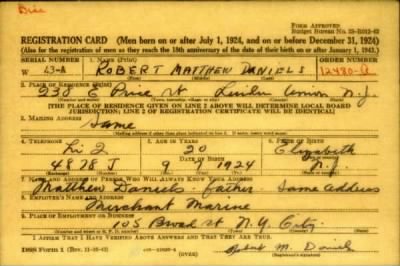 Disc
FORM APPROVED
Budget Bureau No. 33-R012-42
REGISTRATION CARD (Men born on or after July 1, 1924, and on or before December 31, 1924)
(Also for the registration of men as they reach the 18th anniversary of the date of their birth on or after January 1, 1943.)
SERIAL NUMBER 1. NAME (Print) ORDER NUMBER
W 43-A ROBERT MATTHEW DANIELS 12480-A
2. PLACE OF RESIDENCE (Print)
230 E Price St Linden Union N.J.
[THE PLACE OF RESIDENCE GIVEN ON LINE 2 ABOVE WILL DETERMINE LOCAL BOARD
JURISDICTION; LINE 2 OF REGISTRATION CERTIFICATE WILL BE IDENTICAL]
3. MAILING ADDRESS
Same
4. TELEPHONE 5. AGE IN YEARS 6. PLACE OF BIRTH
Li 2 20 Elizabeth
4828 J 9 9 1924 N.J.
7. NAME AND ADDRESS OF PERSON WHO WILL ALWAYS KNOW YOUR ADDRESS
Matthew Daniels - Father - Same Address
8. EMPLOYER'S NAME AND ADDRESS
Merchant Marine
9. PLACE OF EMPLOYMENT OR BUSINESS
105 Broad St N.Y. City
I AFFIRM THAT I HAVE VERIFIED ABOVE ANSWERS AND THAT THEY ARE TRUE.
DSS Form 1 (OVER) Robert M. Daniels